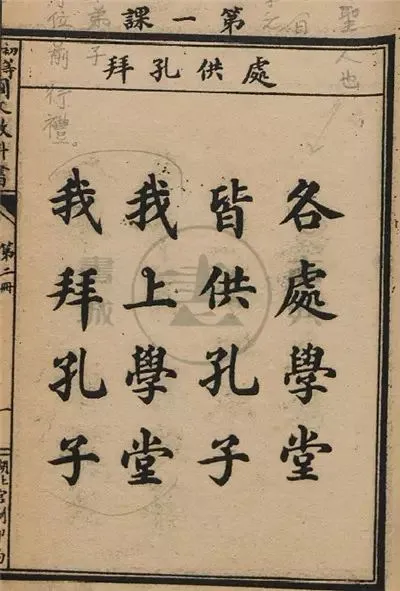 第一課
拜孔供處
各處學堂
皆供孔子
我上學堂
我拜孔子
初等國文教科書
第二冊
一
聖人也
弟子
位前行禮。
書